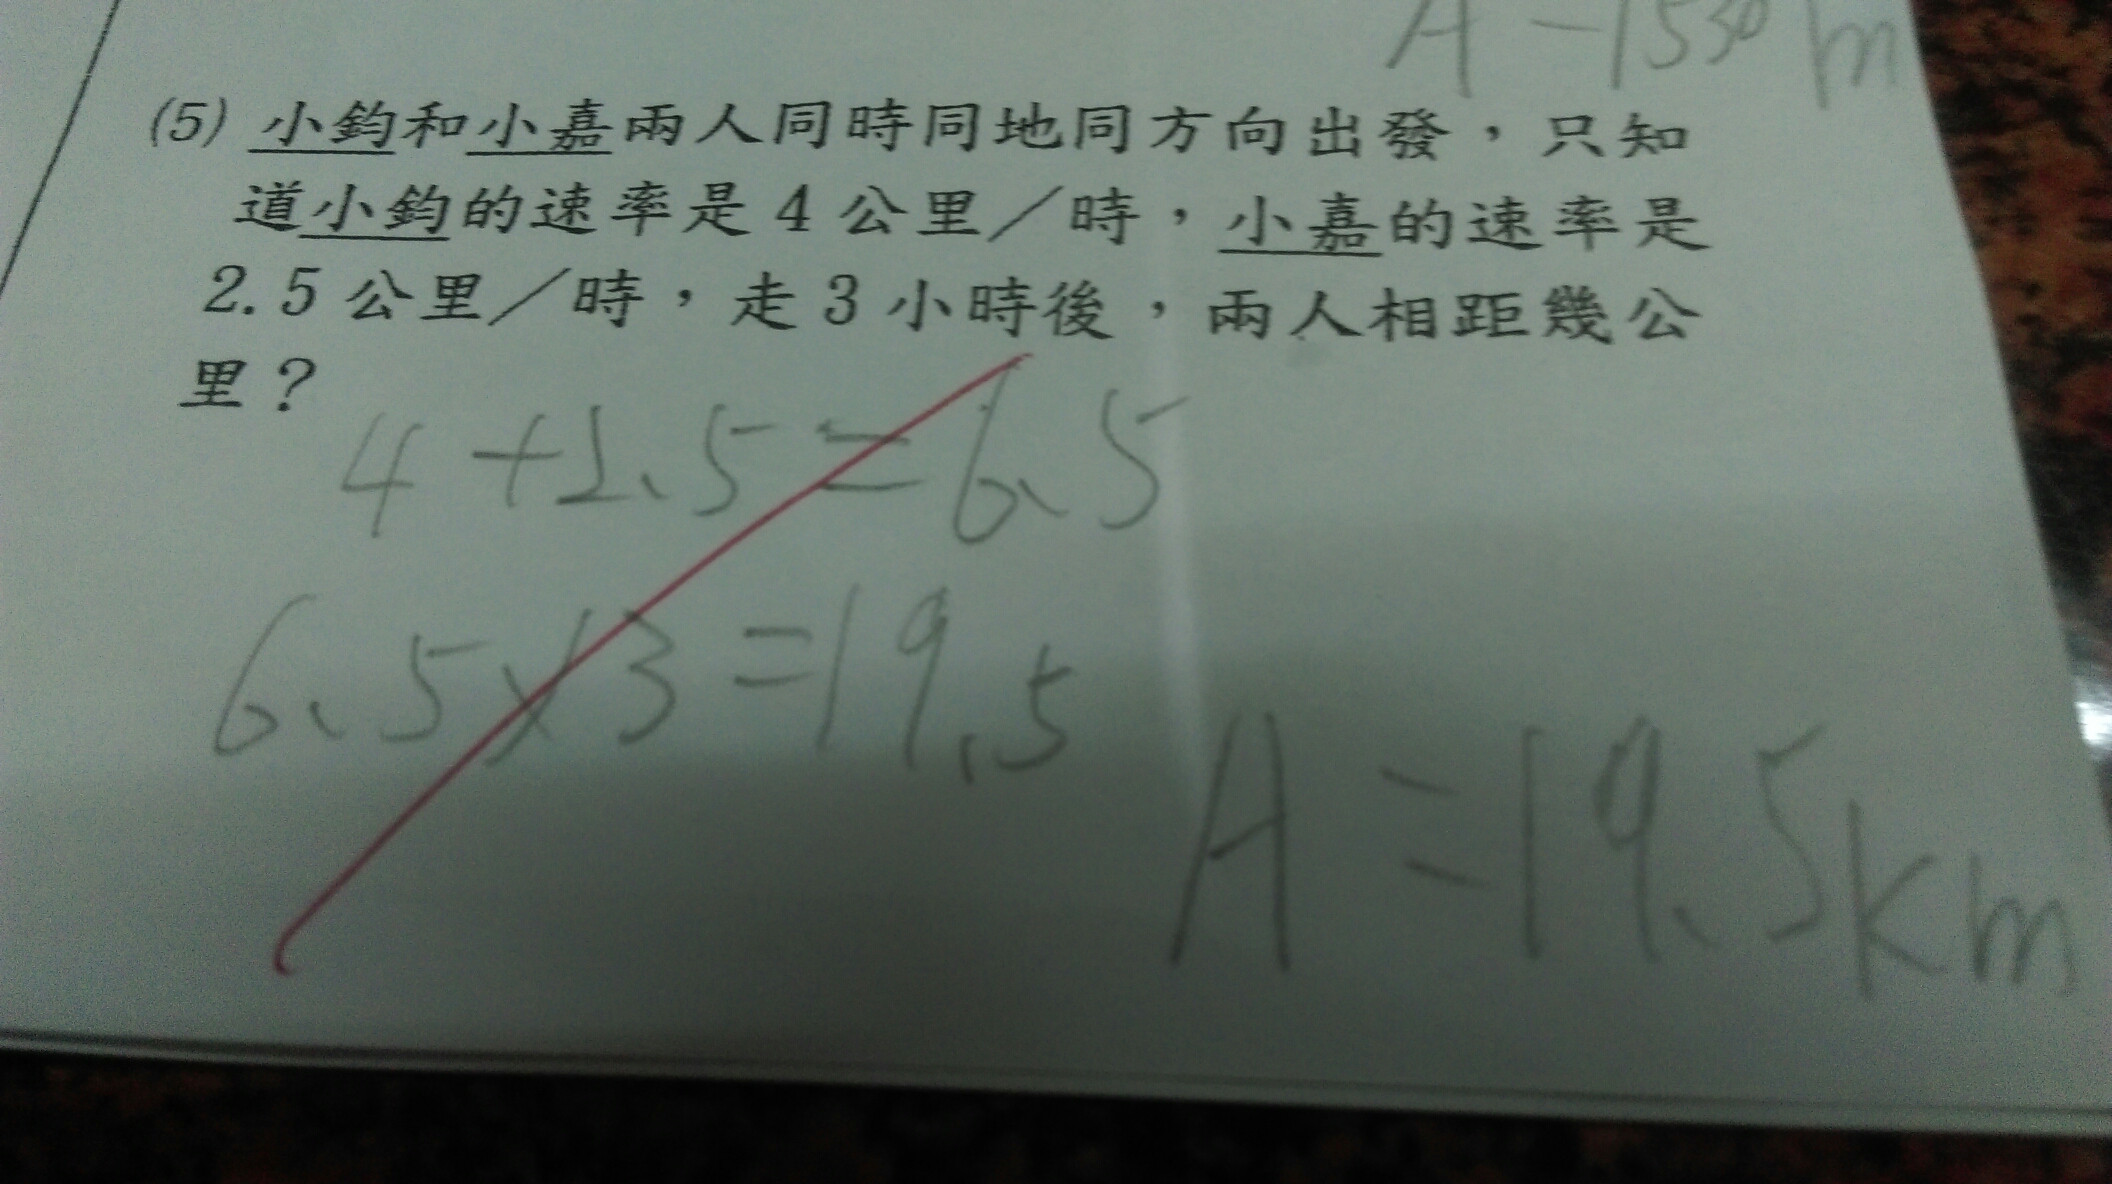 A=1530m
(5) 小鈞和小嘉兩人同時同地同方向出發，只知
道小鈞的速率是4公里／時，小嘉的速率是
2.5公里／時，走3小時後，兩人相距幾公
里？
4+2.5=6.5
6.5×3=19.5
A=19.5km